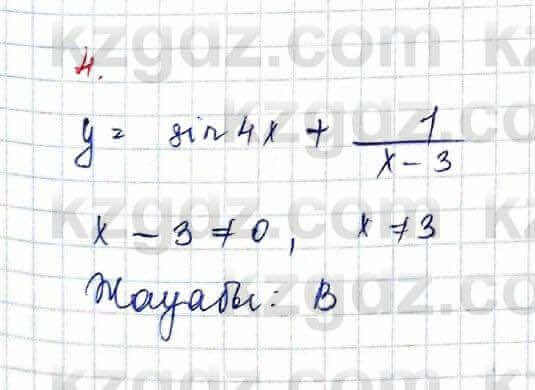 kzgdz.com
4.
y = sin 4x + 1/(x - 3)
x - 3 ≠ 0, x ≠ 3
Жауабы: B